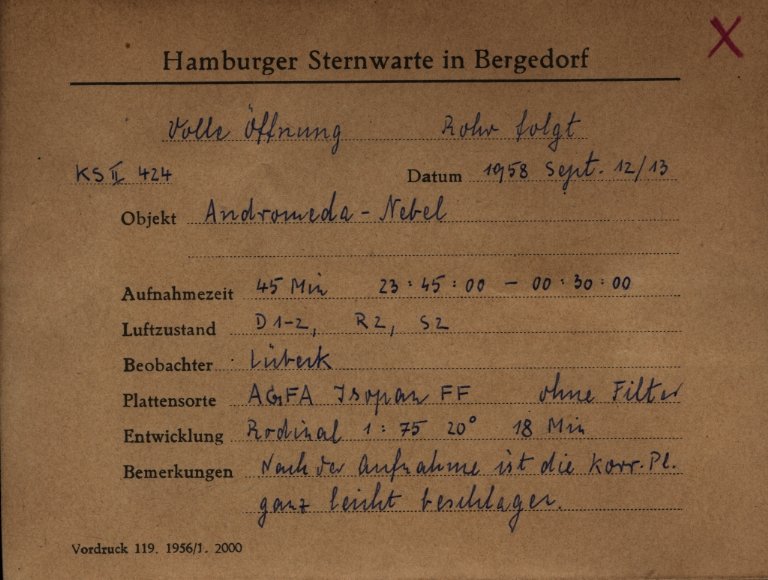 Hamburger Sternwarte in Bergedorf
X
Volle Öffnung Rohr folgt
KS II 424 Datum 1958 Sept. 12/13
Objekt Andromeda - Nebel
Aufnahmezeit 45 Min 23:45:00 - 00:30:00
Luftzustand D1-2, R2, S2
Beobachter Lübeck
Plattensorte AGFA Isopan FF ohne Filter
Entwicklung Rodinal 1:75 20° 18 Min
Bemerkungen Nach der Aufnahme ist die Korr.Pl.
ganz leicht beschlagen.
Vordruck 119. 1956/1. 2000